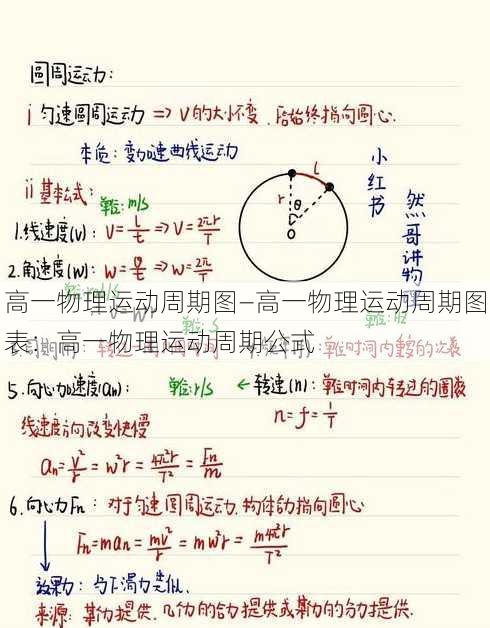 圆周运动:
i 匀速圆周运动 => V的大小不变, F合始终指向圆心.
本质: 变加速曲线运动
小红书
然哥讲物理
l
r
θ
O
ii 基本公式:
单位: m/s
1.线速度(v): V=l/t => V=2πr/T
2.角速度(w): w=φ/t => w=2π/T
高一物理运动周期图—高一物理运动周期图
表：高一物理运动周期公式
单位时间内
5.向心加速度(an): 单位: r/s ← 转速(n): 单位时间内转过的圈数
n=f=1/T
线速度方向改变快慢
an=v²/r=w²r=4π²r/T²=Fn/m
6.向心力Fn: 对于匀速圆周运动, 物体的 指向圆心
Fn=man=mv²/r=mw²r=m4π²r/T²
效果力: 与下滑力类似.
来源: 某力提供. 几个力的合力提供或某力的分力提供.